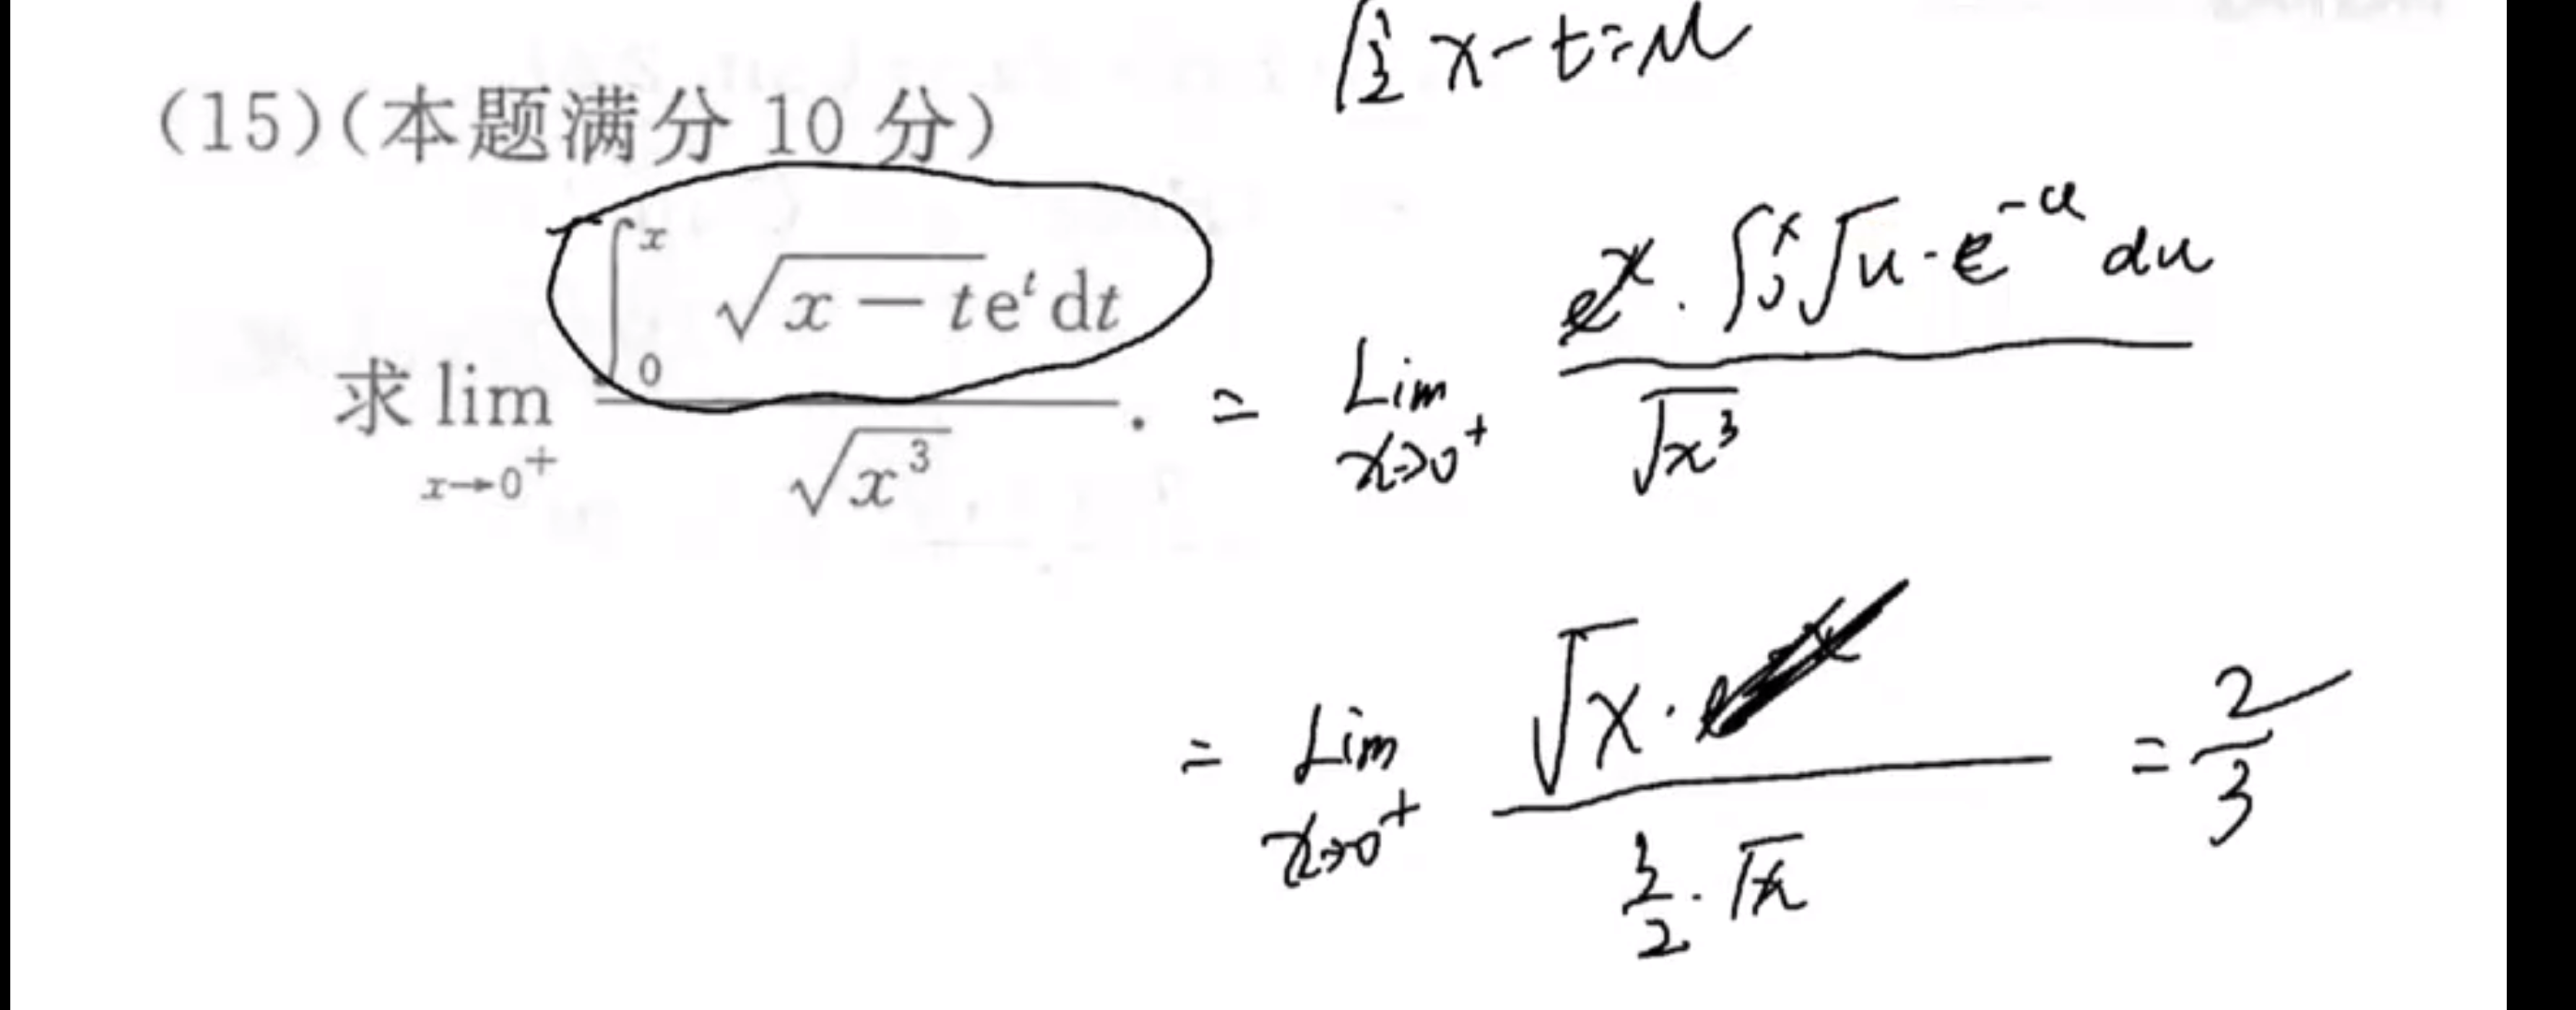 原 x-t=u
(15)(本题满分 10 分)
求 lim_{x→0^+} \frac{\int_0^x \sqrt{x-t}e^t dt}{\sqrt{x^3}}. = Lim_{x→0^+} \frac{e^x \cdot \int_0^x \sqrt{u} \cdot e^{-u} du}{\sqrt{x^3}}
= Lim_{x→0^+} \frac{\sqrt{x} \cdot}{\frac{3}{2} \cdot \sqrt{x}} = \frac{2}{3}